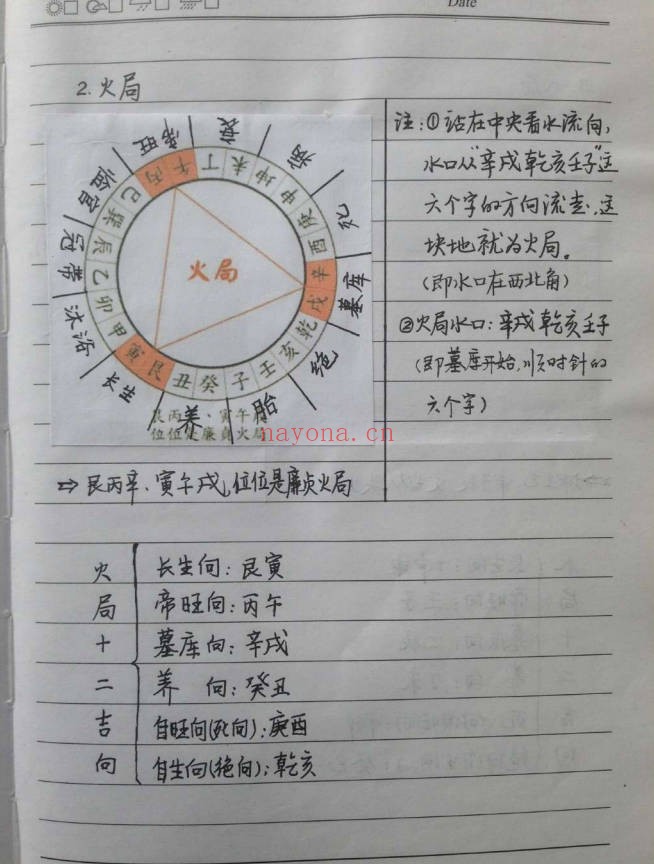 Date
2. 火局
帝旺
衰
病
死
墓库
绝
胎
养
长生
沐浴
冠带
临官
丙午丁未坤申庚酉辛戌乾亥壬子癸丑艮寅甲卯乙辰巽巳
火局
艮丙
寅午
位位是廉貞火局
nayona.cn
注:①站在中央看水流向,
水口从“辛戌乾亥壬子”这
六个字的方向流走,这
块地就为火局。
(即水口在西北角)
②火局水口:辛戌乾亥壬子
(即墓库开始,顺时针的
六个字)
⇨艮丙辛、寅午戌,位位是廉贞火局
火局十二吉向
长生向:艮寅
帝旺向:丙午
墓库向:辛戌
养 向:癸丑
自旺向(死向):庚酉
自生向(绝向):乾亥